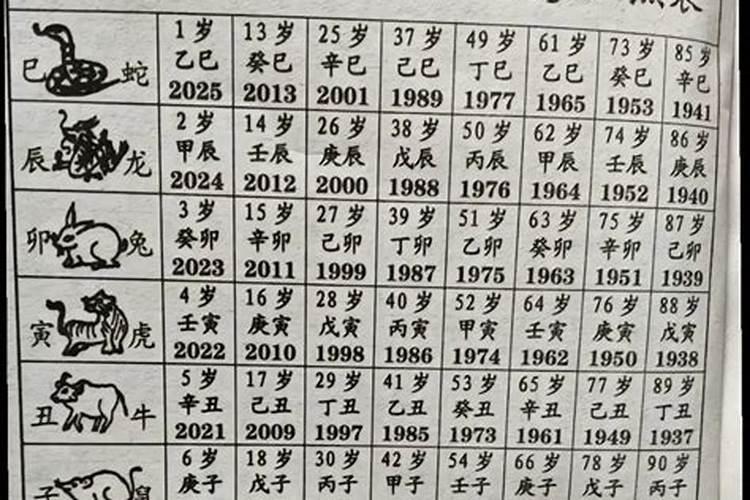 巳 蛇 1岁 13岁 25岁 37岁 49岁 61岁 73岁 85岁
乙巳 癸巳 辛巳 己巳 丁巳 乙巳 癸巳 辛巳
2025 2013 2001 1989 1977 1965 1953 1941
辰 龙 2岁 14岁 26岁 38岁 50岁 62岁 74岁 86岁
甲辰 壬辰 庚辰 戊辰 丙辰 甲辰 壬辰 庚辰
2024 2012 2000 1988 1976 1964 1952 1940
卯 兔 3岁 15岁 27岁 39岁 51岁 63岁 75岁 87岁
癸卯 辛卯 己卯 丁卯 乙卯 癸卯 辛卯 己卯
2023 2011 1999 1987 1975 1963 1951 1939
寅 虎 4岁 16岁 28岁 40岁 52岁 64岁 76岁 88岁
壬寅 庚寅 戊寅 丙寅 甲寅 壬寅 庚寅 戊寅
2022 2010 1998 1986 1974 1962 1950 1938
丑 牛 5岁 17岁 29岁 41岁 53岁 65岁 77岁 89岁
辛丑 己丑 丁丑 乙丑 癸丑 辛丑 己丑 丁丑
2021 2009 1997 1985 1973 1961 1949 1937
子 鼠 6岁 18岁 30岁 42岁 54岁 66岁 78岁 90岁
庚子 戊子 丙子 甲子 壬子 庚子 戊子 丙子